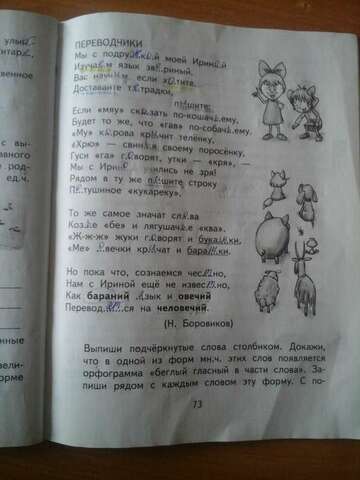 ПЕРЕВОДЧИКИ
Мы с подружкой моей Ириной
Изучаем язык звериный.
Вас научим, если хотите.
Доставайте тетрадки,
пишите:
Если «мяу» сказать по-кошачьему,
Будет то же, что «гав» по-собачьему.
«Му» корова кричит телёнку,
«Хрю» — свинья своему поросёнку,
Гуси «га» говорят, утки — «кря», —
Мы с Ириной учились не зря!
Рядом в ту же пишите строку
Петушиное «кукареку».
То же самое значат слова
Козье «бе» и лягушачье «ква».
«Ж-ж-ж» жуки говорят и букашки,
«Ме» овечки кричат и барашки.
Но пока что, сознаемся честно,
Нам с Ириной ещё не известно,
Как бараний язык и овечий
Переводится на человечий.
(Н. Боровиков)
Выпиши подчёркнутые слова столбиком. Докажи,
что в одной из форм мн.ч. этих слов появляется
орфограмма «беглый гласный в части слова». За-
пиши рядом с каждым словом эту форму. С по-
73
улы
нтарс
твенное
с вы-
авного
е род-
ед.ч.
нные
вели-
орме